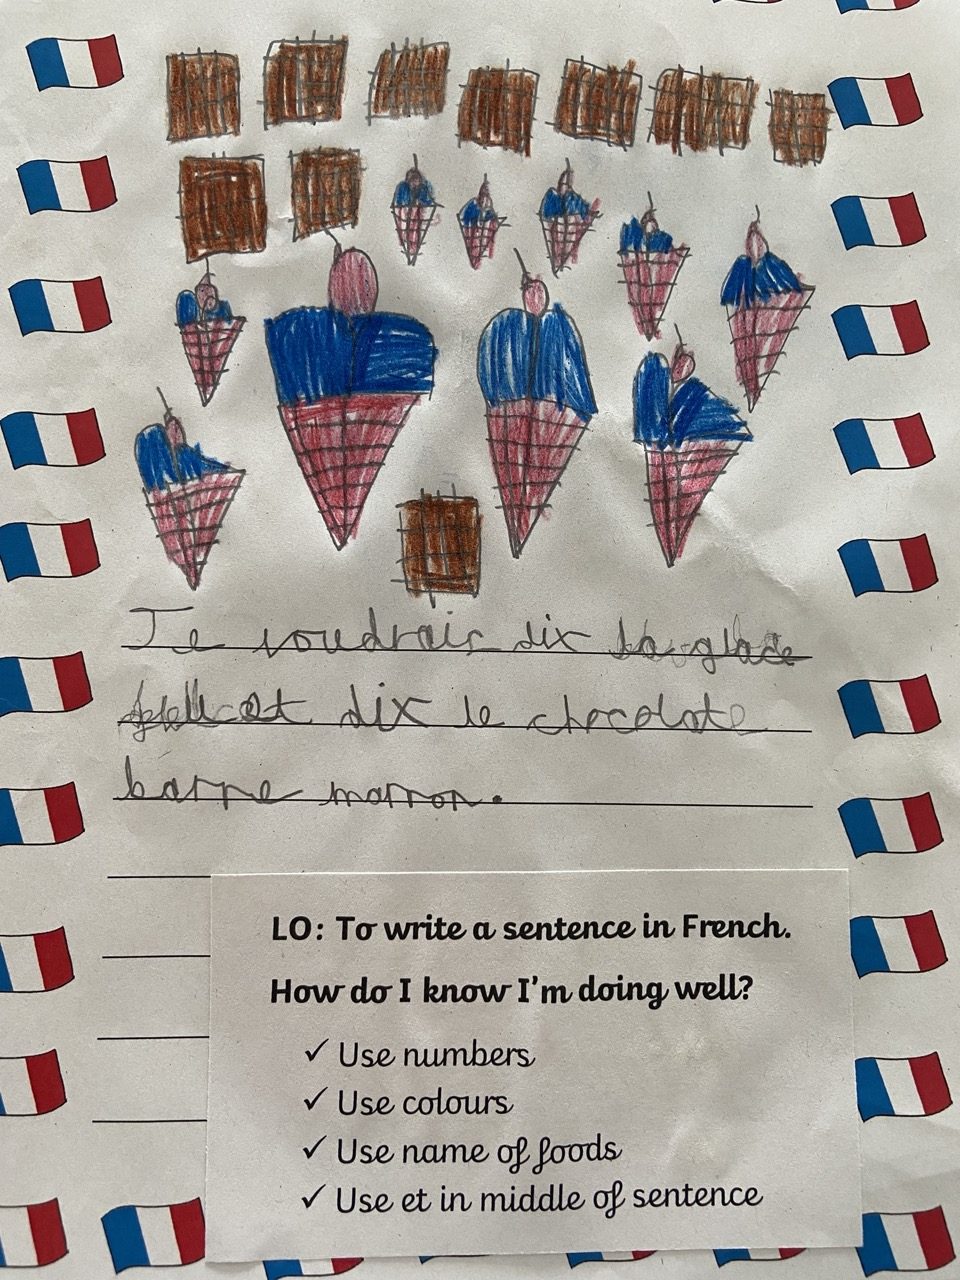 Je voudrais dix la glace
et dix le chocolate
barre marron.
LO: To write a sentence in French.
How do I know I'm doing well?
✓ Use numbers
✓ Use colours
✓ Use name of foods
✓ Use et in middle of sentence